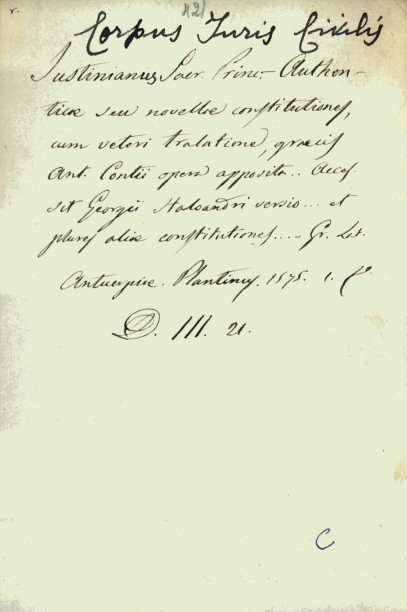 r. 1(2)
Corpus Iuris Civilis
Justinianus Sacr. Princ. Authen-
ticae seu novellae constitutiones,
cum veteri tralatione, graecis
Ant. Contii opera apposita.. Acces.
sit Georgii Haloandri versio... et
plures aliae constitutiones... Gr. Lat.
Antuerpiae. Plantinus. 1575. 1. fo.
D. III. 21.
C